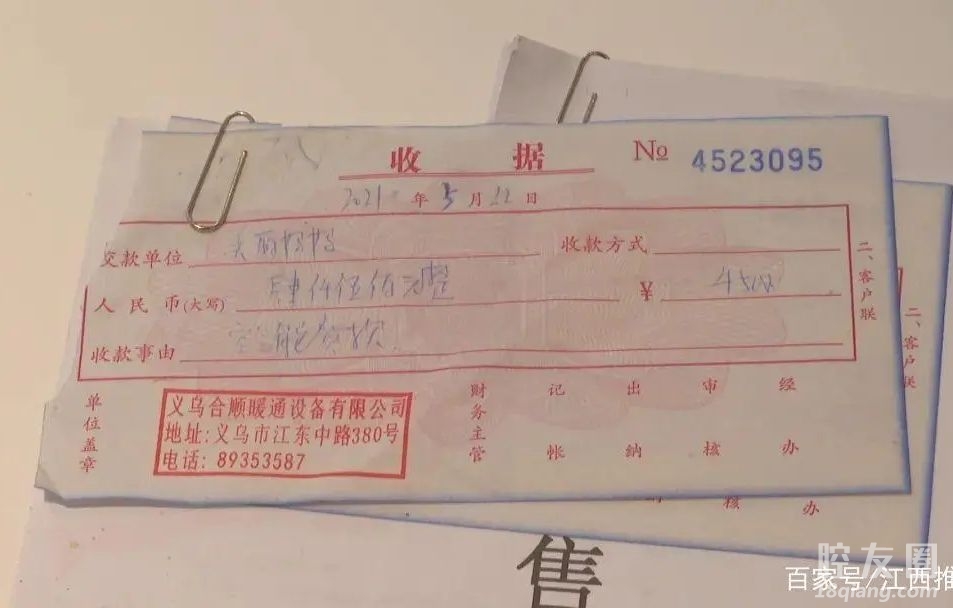 收 据 № 4523095
2021 年 5 月 22 日
交款单位 美丽妈妈 收款方式
人民币(大写) 肆仟伍佰元整 ¥ 4500
收款事由 空 能 款
二、客户联
单位盖章
义乌合顺暖通设备有限公司
地址:义乌市江东中路380号
电话: 89353587
财务主管 记帐 出纳 审核 经办
二、客户联
核 办
售
腔友圈
18qiang.com
百家号/江西推